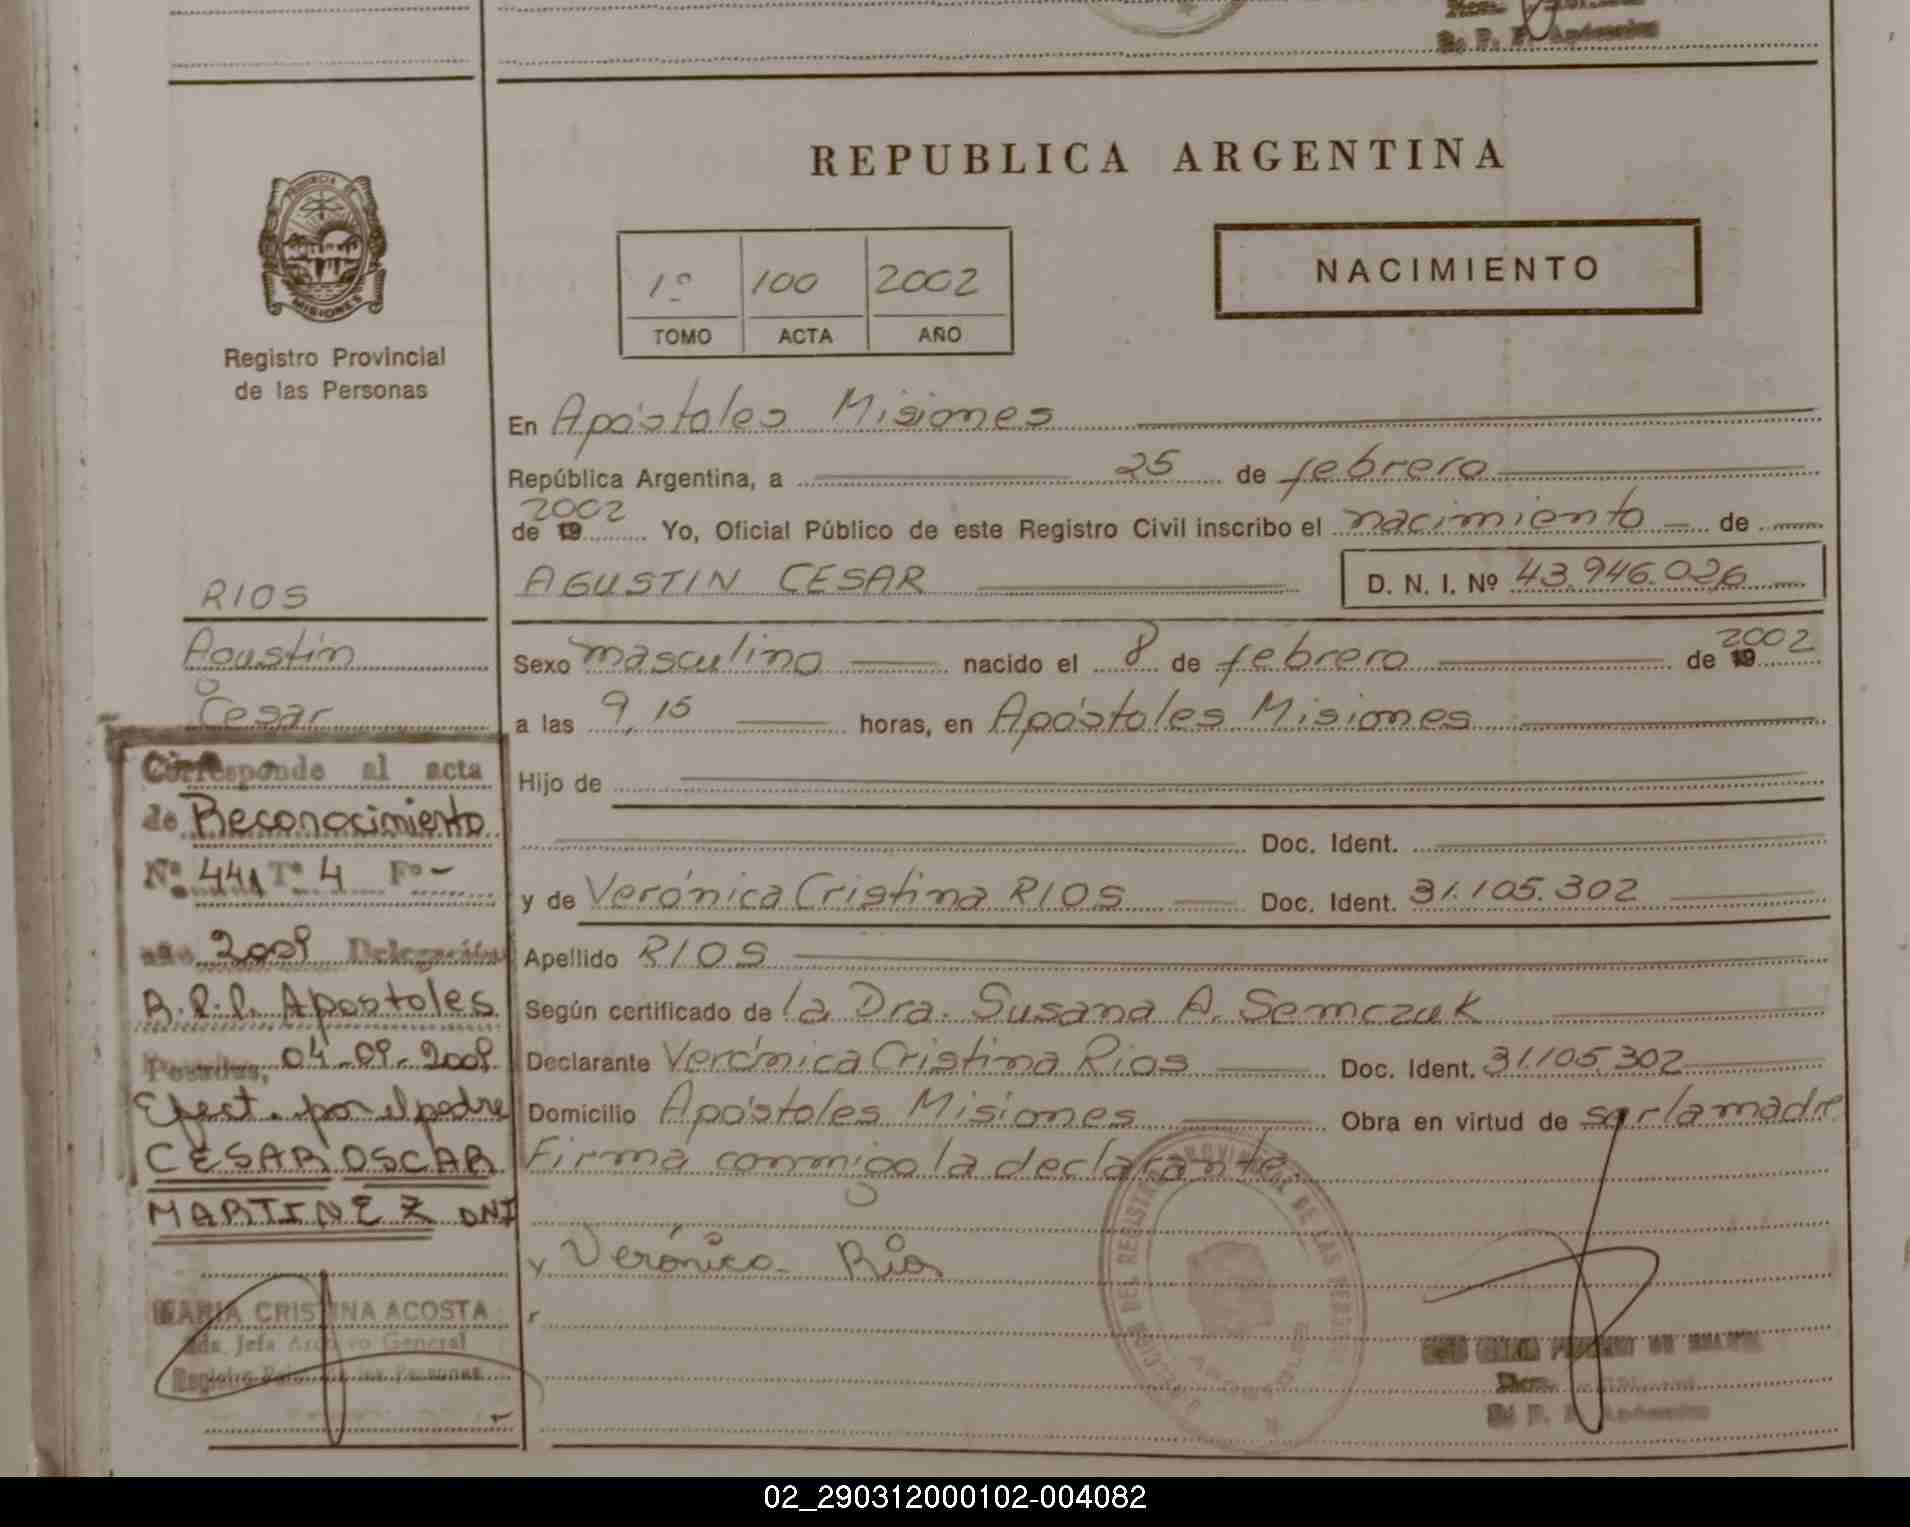 REPUBLICA ARGENTINA
PROVINCIA DE
MISIONES
Registro Provincial
de las Personas
1º 100 2002
TOMO ACTA AÑO
NACIMIENTO
En Apóstoles Misiones
República Argentina, a 25 de febrero
de 19 2002 Yo, Oficial Público de este Registro Civil inscribo el nacimiento de
AGUSTIN CESAR D. N. I. Nº 43.946.026
Sexo masculino nacido el 8 de febrero de 19 2002
a las 9,15 horas, en Apóstoles Misiones
Hijo de
Doc. Ident.
y de Verónica Cristina RIOS Doc. Ident. 31.105.302
Apellido RIOS
Según certificado de la Dra. Susana A. Semczuk
Declarante Verónica Cristina Rios Doc. Ident. 31.105.302
Domicilio Apóstoles Misiones Obra en virtud de ser la madre
Firma conmigo la declarante
Verónica Rios
RIOS
Agustín
Cesar
Corresponde al acta
de Reconocimiento
Nº 441 Tº 4 Fº -
año 2009 Delegación
R.P.P. Apostoles
Posadas, 04-09-2009
Efect. por el padre
CESAR OSCAR
MARTINEZ DNI
MARIA CRISTINA ACOSTA
Jefa Archivo General
02_290312000102-004082